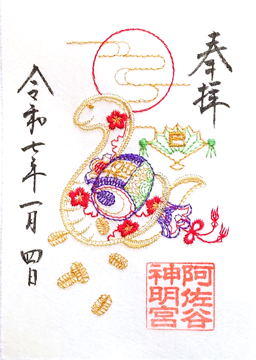 奉拝
巳
令和七年一月四日
阿佐谷
神明宮